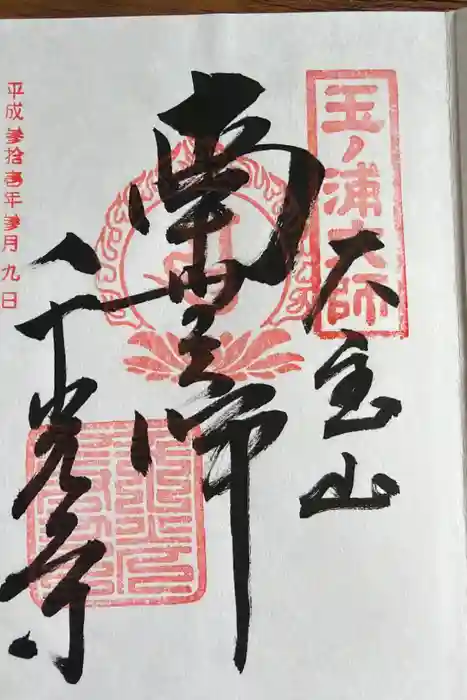 玉ノ浦大師
大宝山
南無大師
平成参拾壱年参月九日
千光寺